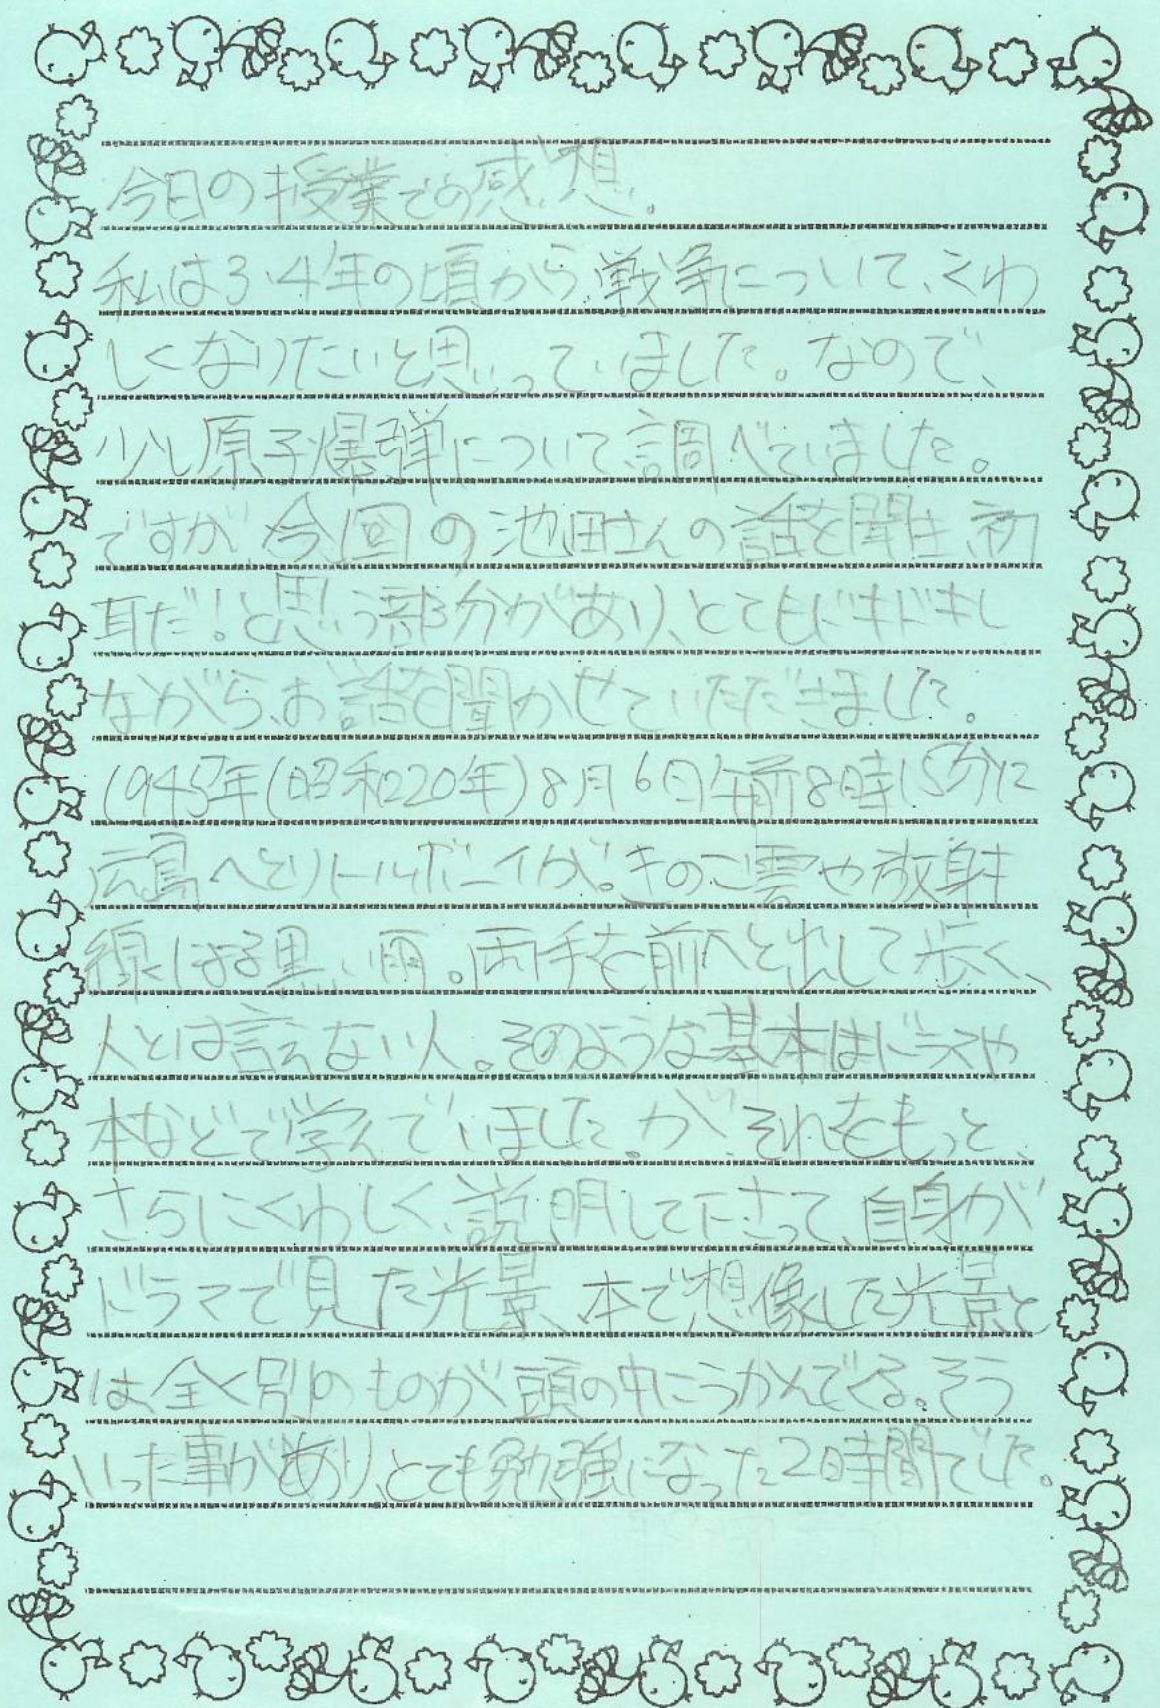 今日の授業での感想。
私は3.4年の頃から、戦争について、くわ
しくなりたいと思っていました。なので、
少し原子爆弾について調べていました。
ですが、今回の池田さんの話を聞き、初
耳だ!と思う部分があり、とてもドキドキし
ながら、お話を聞かせていただきました。
1945年(昭和20年)8月6日午前8時15分に
広島へとリトルボーイが。きのこ雲や放射
線による黒い雨。両手を前へと出して歩く、
人とは言えない人。そのような基本はドラマや
本などで学んでいました。が、それをもっと、
さらにくわしく、説明して下さって、自身が
ドラマで見た光景、本で想像した光景と
は全く別のものが頭の中にうかんでくる。そう
いった事があり、とても勉強になった2時間でした。